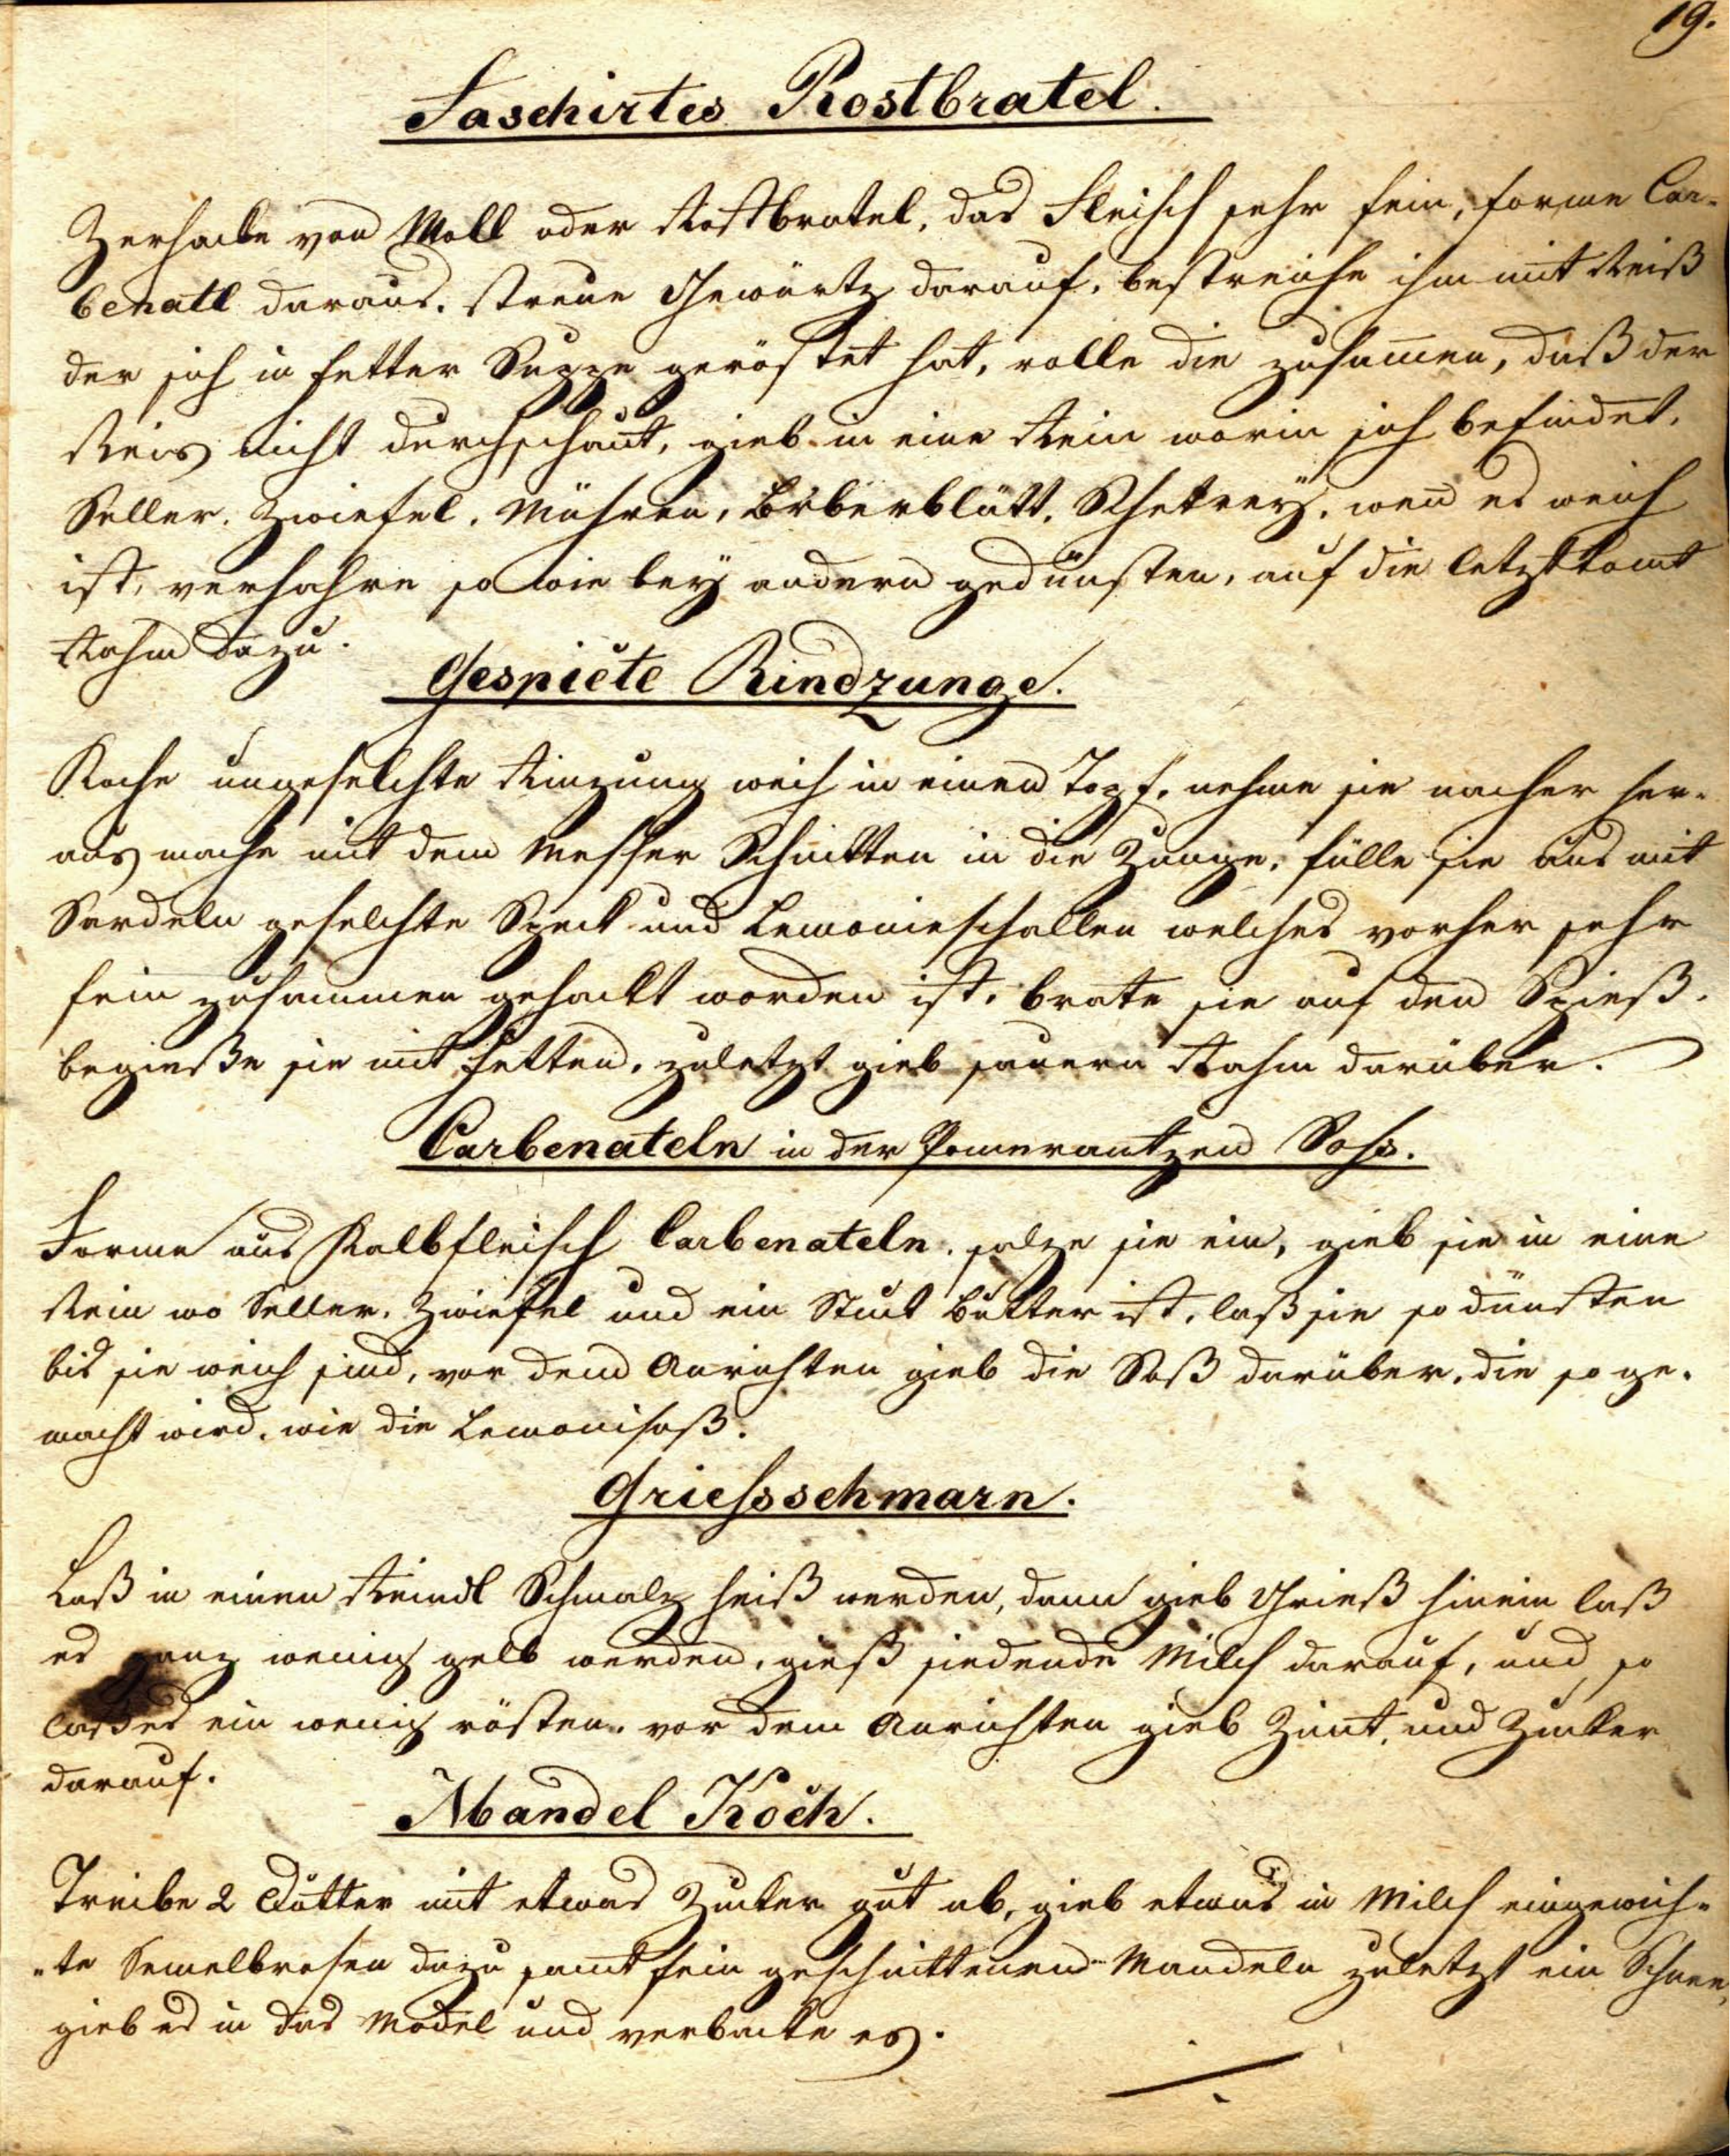 19.
Faschirtes Rostbratel.
Zerhacke von Moll oder Rostbratel, das Fleisch sehr fein, forme Car-
benatl daraus. streue Gewürtz darauf, bestreiche ihm mit Reiß
der sich in fetter Suppe geröstet hat, rolle die zusamen, daß der
Reis nicht durchschaut, gieb in eine Rein worin sich befindet,
Seller, Zwiefel, Mühren, Lorberblätt, wen es weich
ist, verfahre so wie bey andern gedünsten, auf die letzt komt
Rahm dazu.
Gespickte Rindzunge.
Koche ungeselchte Rinzung weich in einen Topf, nehme sie nacher her-
aus mache mit dem Messer Schnitten in die Zunge, fülle sie aus mit
Sardeln geselchte Speck und Lemonieschallen welches vorher sehr
fein zusammen gehackt worden ist, brate sie auf den Spieß.
begieße sie mit fetten, zuletzt gieb sauern Rahm darüber.
Carbenateln in der Pomerantzen Soß.
Forme aus Kalbfleisch Carbenateln, salze sie ein, gieb sie in eine
Rein wo Seller, Zwiefel und ein Stuck Butter ist, laß sie so dünsten
bis sie weich sind, vor dem Anrichten gieb die Soß darüber, die so ge-
macht wird, wie die Lemonisoß.
Griessschmarn.
Laß in einen Reindl Schmalz heiß werden, dann gieb Grieß hinein laß
es ganz wenig gelb werden, gieß siedende Milch darauf, und so
laß es ein wenig rösten. vor dem Anrichten gieb Zimt, und Zucker
darauf.
Mandel Koch.
Treibe 2 Dotter mit etwas Zucker gut ab, gieb etwas in Milch eingeweich-
-te Semelbresen dazu samt fein geschnittenen Mandeln zuletzt ein Schnee,
gieb es in das Model und verbacke es.